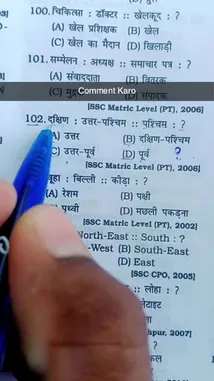 100. चिकित्सा : डॉक्टर :: खेलकूद : ?
(A) खेल प्रशिक्षक (B) खेल
(C) खेल का मैदान (D) खिलाड़ी
101. सम्मेलन : अध्यक्ष :: समाचार पत्र : ?
(A) संवाददाता (B) वितरक
Comment Karo
(D) संपादक
[SSC Matric Level (PT), 2006]
102. दक्षिण : उत्तर-पश्चिम :: पश्चिम : ?
(A) उत्तर (B) दक्षिण-पश्चिम
(C) उत्तर-पूर्व (D) पूर्व ?
[SSC Matric Level (PT), 2006]
बिल्ली :: कीड़ा : ?
(A) रेशम (B) पक्षी
पृथ्वी (D) मछली पकड़ना
[SSC Matric Level (PT), 2002]
North-East :: South : ?
-West (B) South-East
(D) East
[SSC CPO, 2005]
:: लोहा : ?
2007]